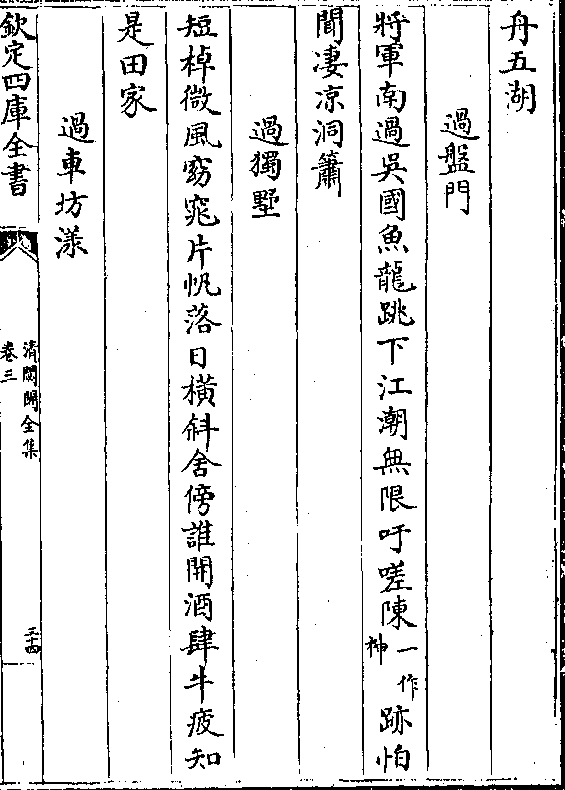 舟五湖
過盤門
將軍南過吳國魚龍跳下江潮無限吁嗟陳一作神跡怕
聞凄凉洞簫
過獨墅
短棹微風窈窕片帆落日橫斜舍傍誰開酒肆牛疲知
是田家
過車坊漾
欽定四庫全書
清閟閣全集
卷三
三十四